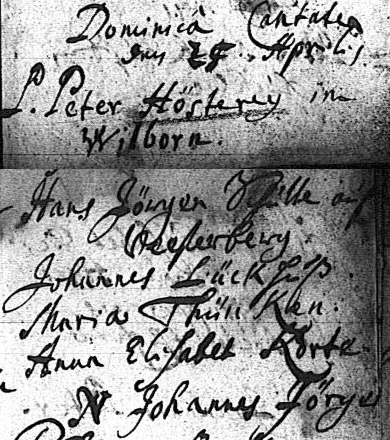 Dominica Cantate
den 24 Aprilis
P. Peter Höstereÿ im
Wilborn.
Hans Jörgen auf
Johannes Lück
Maria Thün Ken.
Anna Elisabet Korte.
N Johannes Jörge